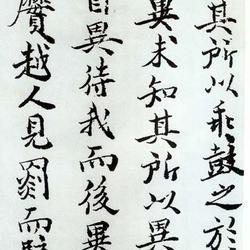 其所以乖鼓之於
異未知其所以異
自異待我而後異
黂越人見罽而駭